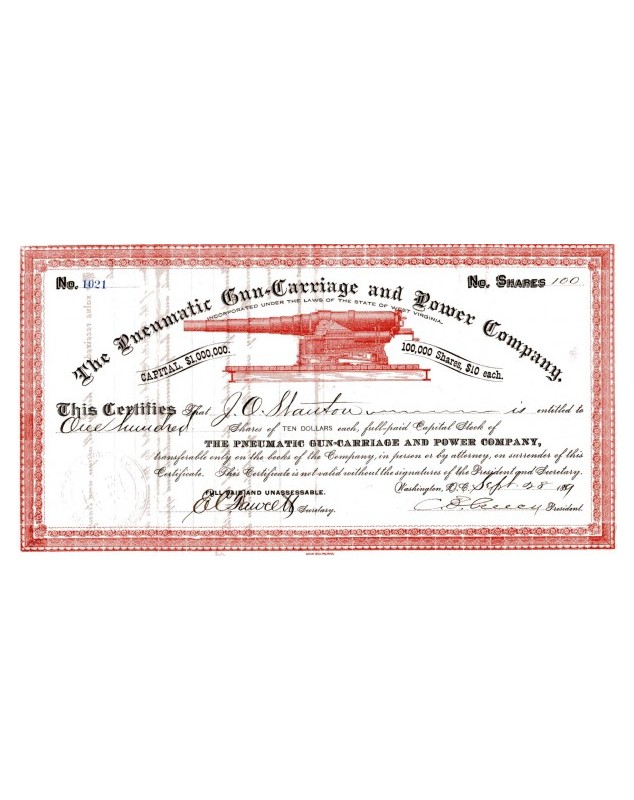 No. 1021
No. Shares 100
The Pneumatic Gun-Carriage and Power Company.
INCORPORATED UNDER THE LAWS OF THE STATE OF WEST VIRGINIA.
CAPITAL, $1,000,000.
100,000 Shares, $10 each.
This Certifies That J. O. Stanton is entitled to
One hundred Shares of TEN DOLLARS each, full-paid Capital Stock of
THE PNEUMATIC GUN-CARRIAGE AND POWER COMPANY,
transferable only on the books of the Company, in person or by attorney, on surrender of this
Certificate. This Certificate is not valid without the signatures of the President and Secretary.
FULL PAID AND UNASSESSABLE.
Washington, D.C. Sept 28 1889
Fawcett Secretary.
President.